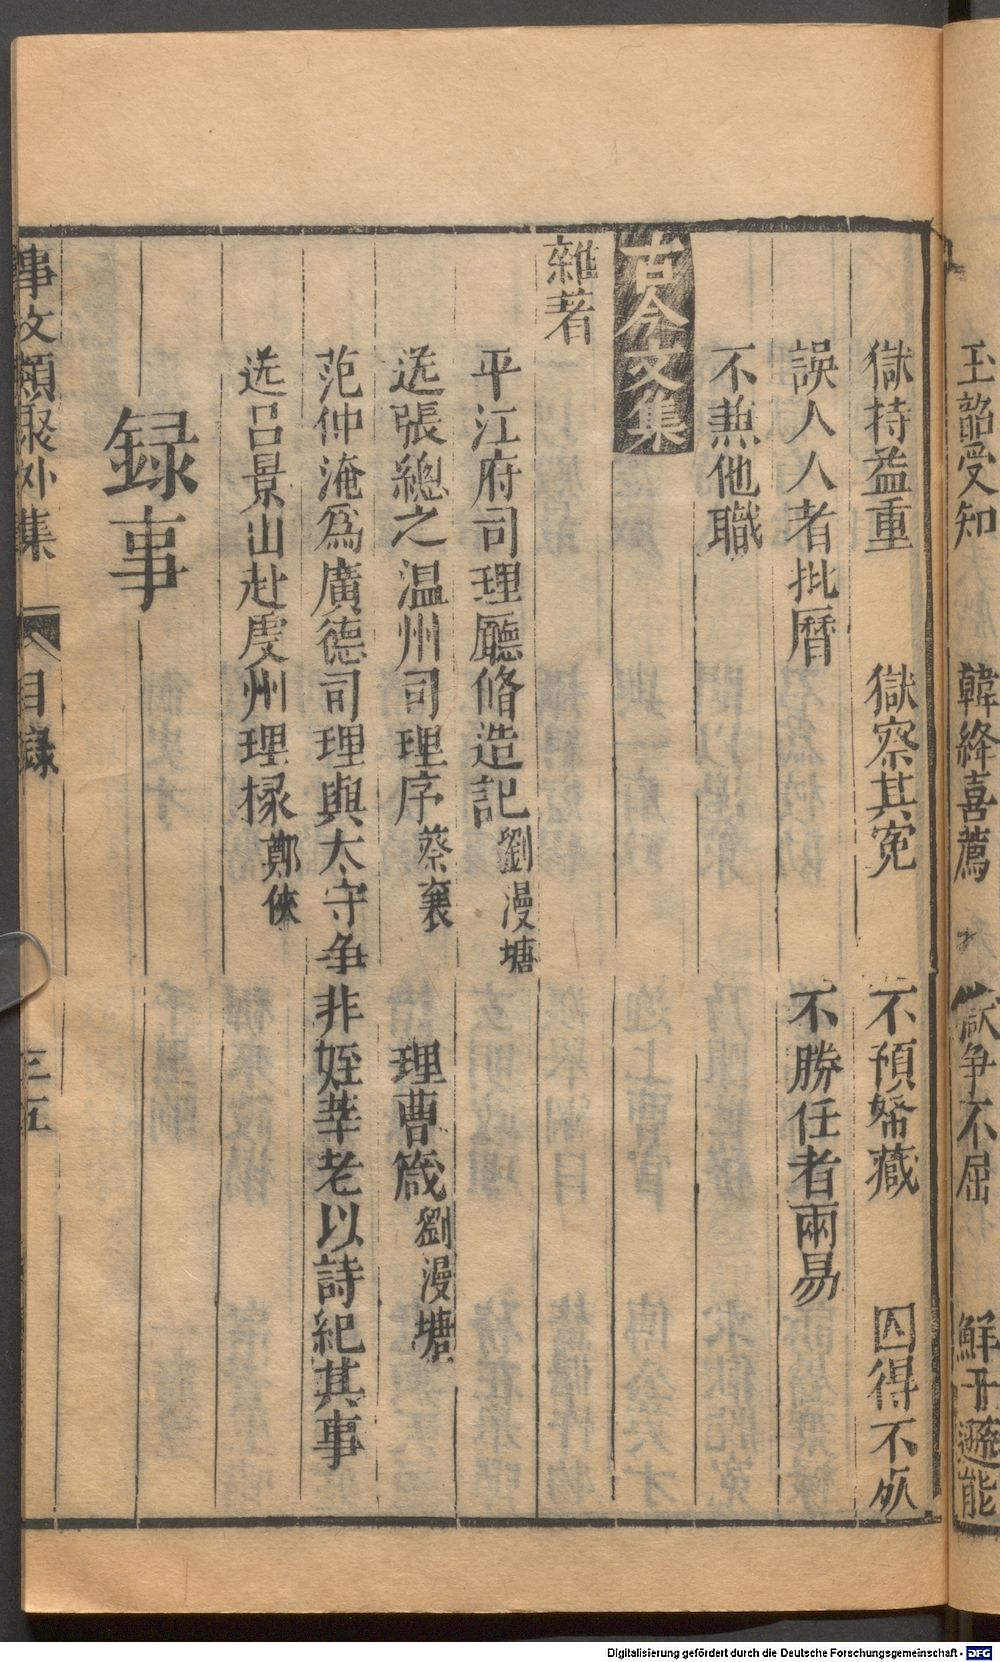 玉韶受知　韓絳喜薦　獄争不屈　鮮于遜能
獄持益重　獄察其寃　不預帑藏　囚得不死
誤人人者批曆　不勝任者兩易
不兼他職
古今文集
雜著
平江府司理廳脩造記劉漫塘
送張總之温州司理序蔡襄　理曹箴劉漫塘
范仲淹爲廣德司理與太守争非姪莘老以詩紀其事
送吕景山赴虔州理掾鄭俠
録事
事文類聚外集　目録　三五
Digitalisierung gefördert durch die Deutsche Forschungsgemeinschaft - DFG